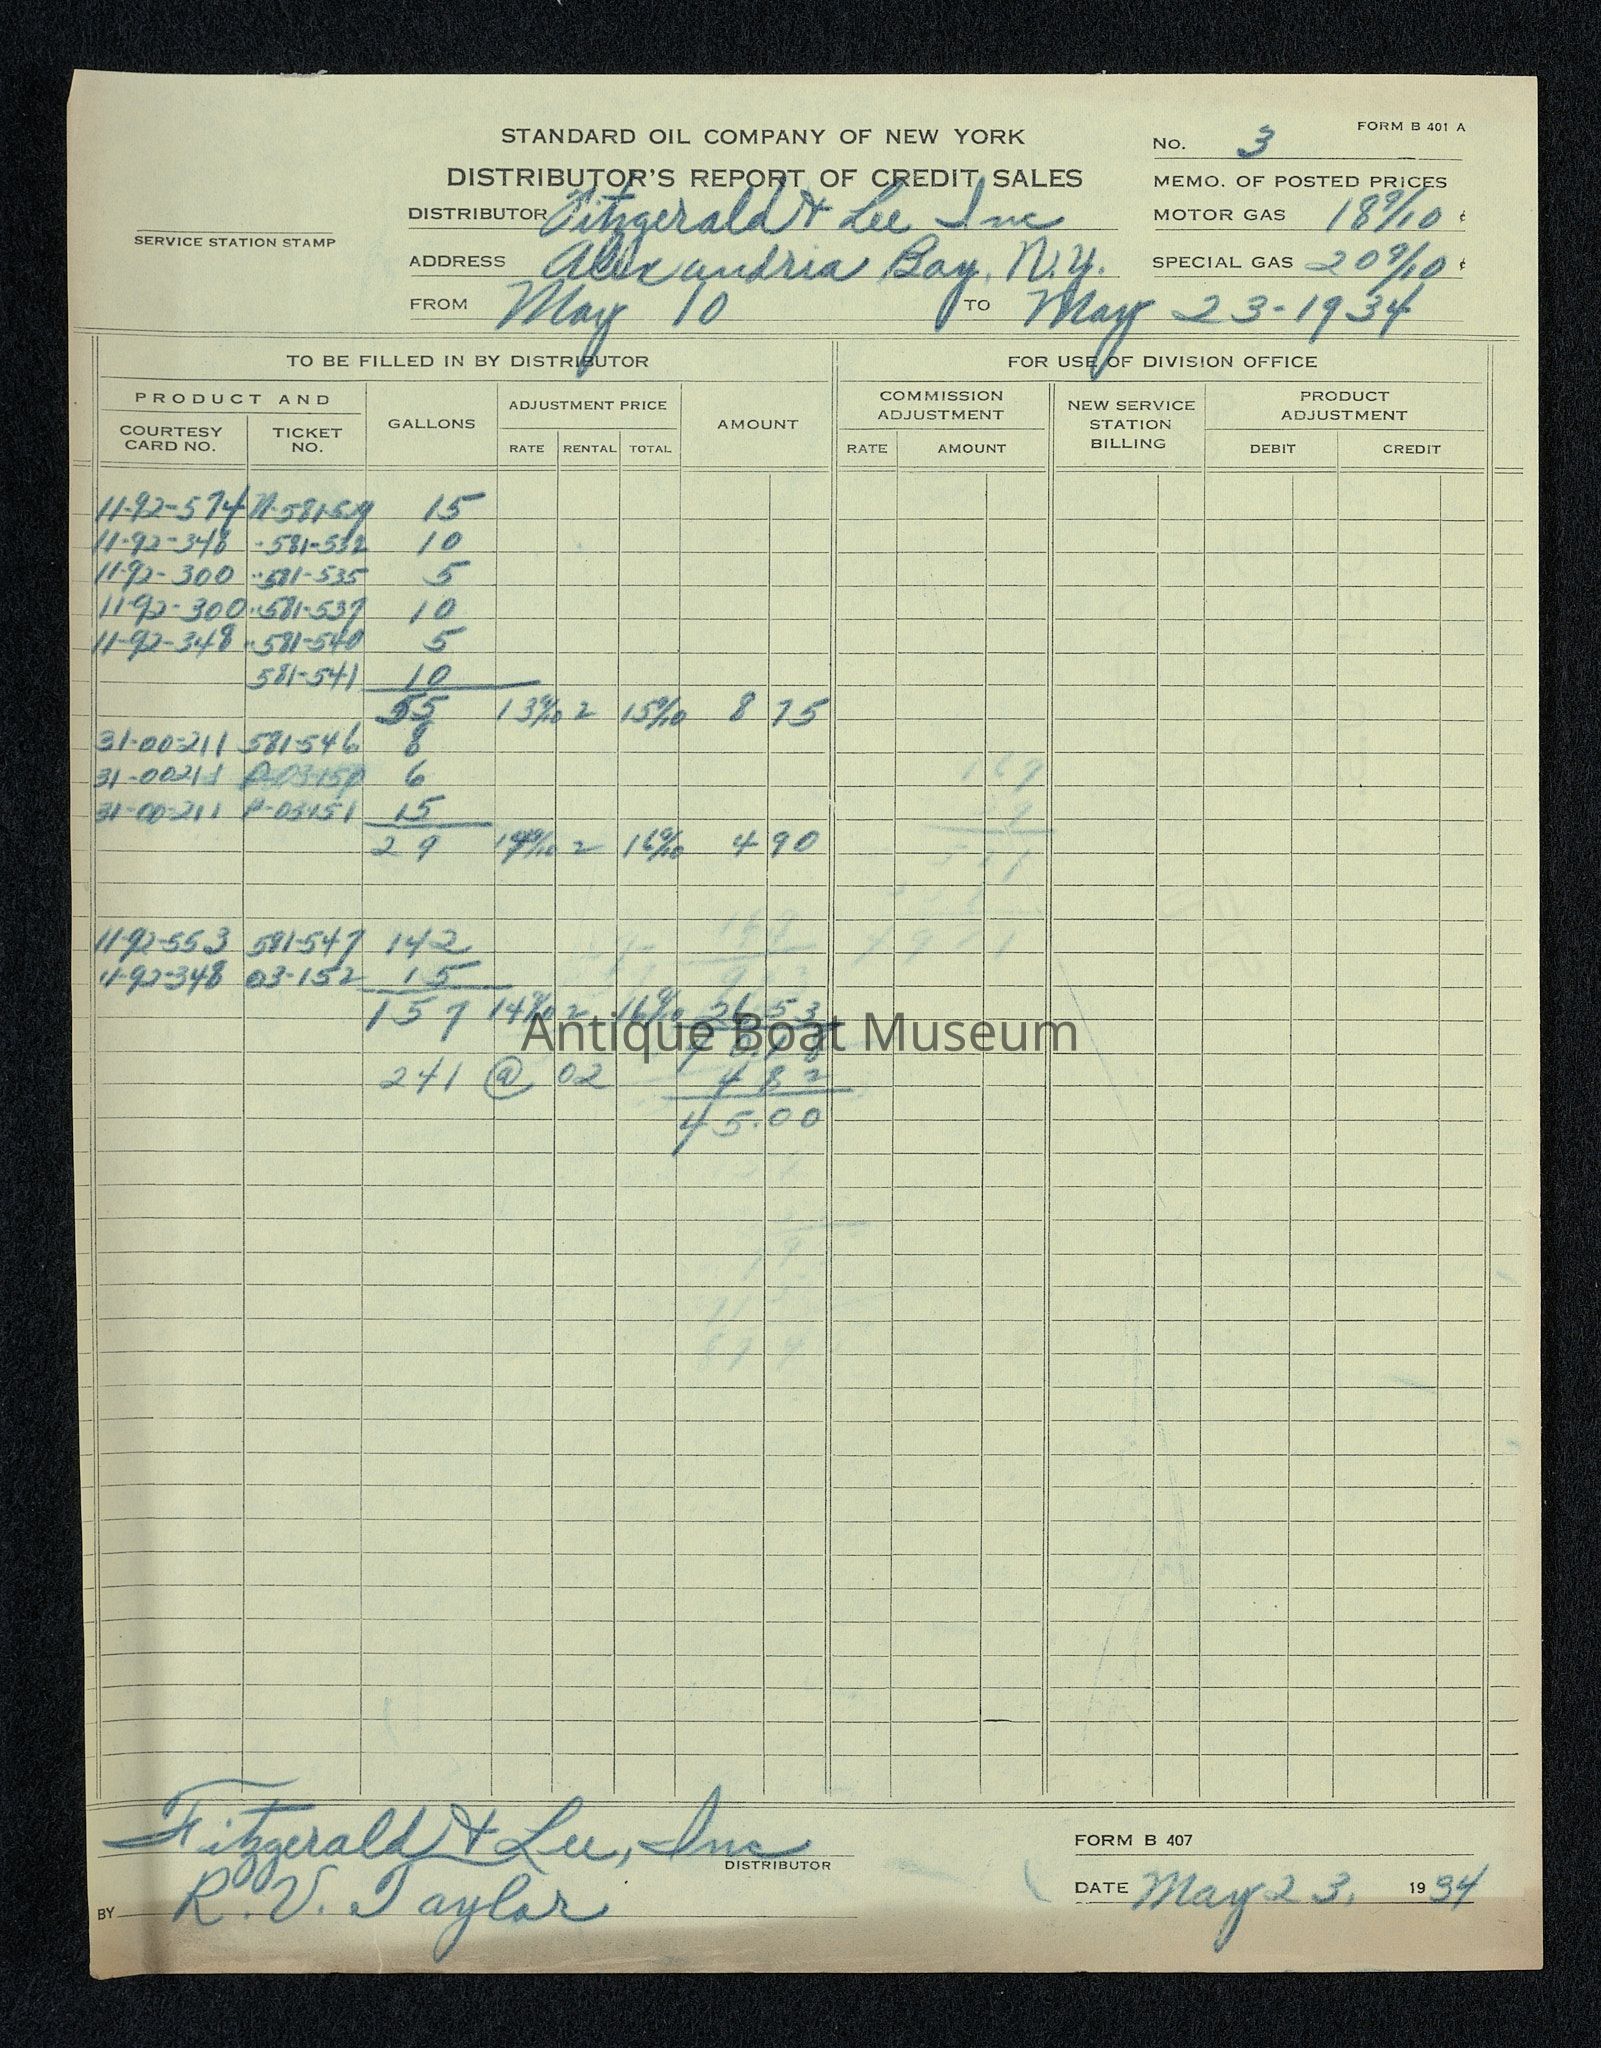 FORM B 401 A
STANDARD OIL COMPANY OF NEW YORK
No. 3
DISTRIBUTOR'S REPORT OF CREDIT SALES
MEMO. OF POSTED PRICES
DISTRIBUTOR Fitzgerald & Lee Inc
MOTOR GAS 18 9/10 ¢
SERVICE STATION STAMP
ADDRESS Alexandria Bay, N.Y.
SPECIAL GAS 20 9/10 ¢
FROM May 10 TO May 23-1934
TO BE FILLED IN BY DISTRIBUTOR
FOR USE OF DIVISION OFFICE
PRODUCT AND
COURTESY CARD NO.
TICKET NO.
GALLONS
ADJUSTMENT PRICE
RATE RENTAL TOTAL
AMOUNT
COMMISSION ADJUSTMENT
RATE AMOUNT
NEW SERVICE STATION BILLING
PRODUCT ADJUSTMENT
DEBIT CREDIT
11-92-574 15
11-92-348 581-532 10
11-92-300 581-535 5
11-92-300 581-537 10
11-92-348 581-540 5
581-541 10
55 13 9/10 2 15 9/10 8 75
31-00-211 581-546 8
31-00211 6
31-00-211 P-03151 15
29 14 9/10 2 16 9/10 4 90
11-92-553 581-547 142
11-92-348 03-152 15
157 14 9/10 2 16 9/10 26 53
Antique Boat Museum
241 @ 02 4 82
45.00
Fitzgerald & Lee, Inc
DISTRIBUTOR
FORM B 407
BY R. V. Taylor
DATE May 23, 1934